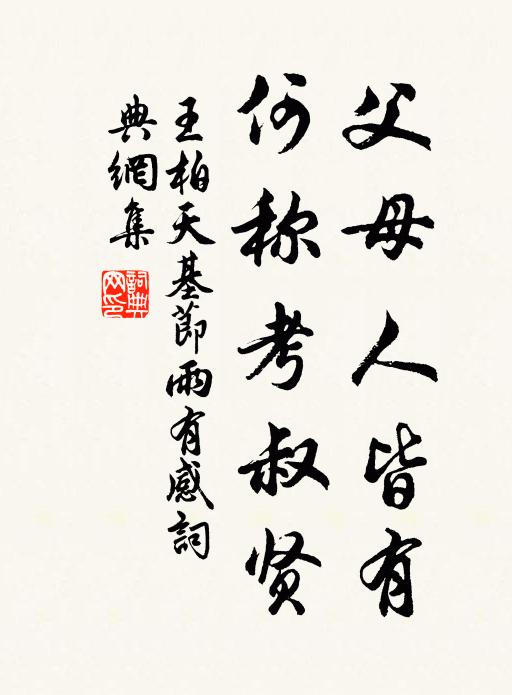 父母人皆有
何称考叔贤
王柏天基节雨有感詞
典網集
詞典网印